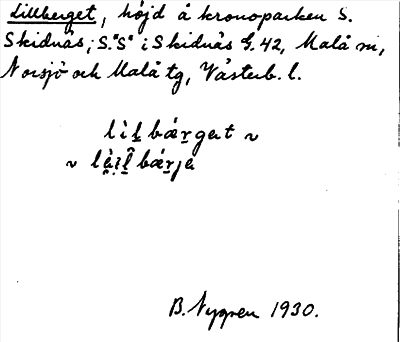 Lillberget, höjd å kronoparken S.
Skidnäs, S."S" i Skidnäs G. 42, Malå sn,
Norsjö och Malå tg, Västerb. l.
bärget ~
~ bärje
B. Nygren 1930.